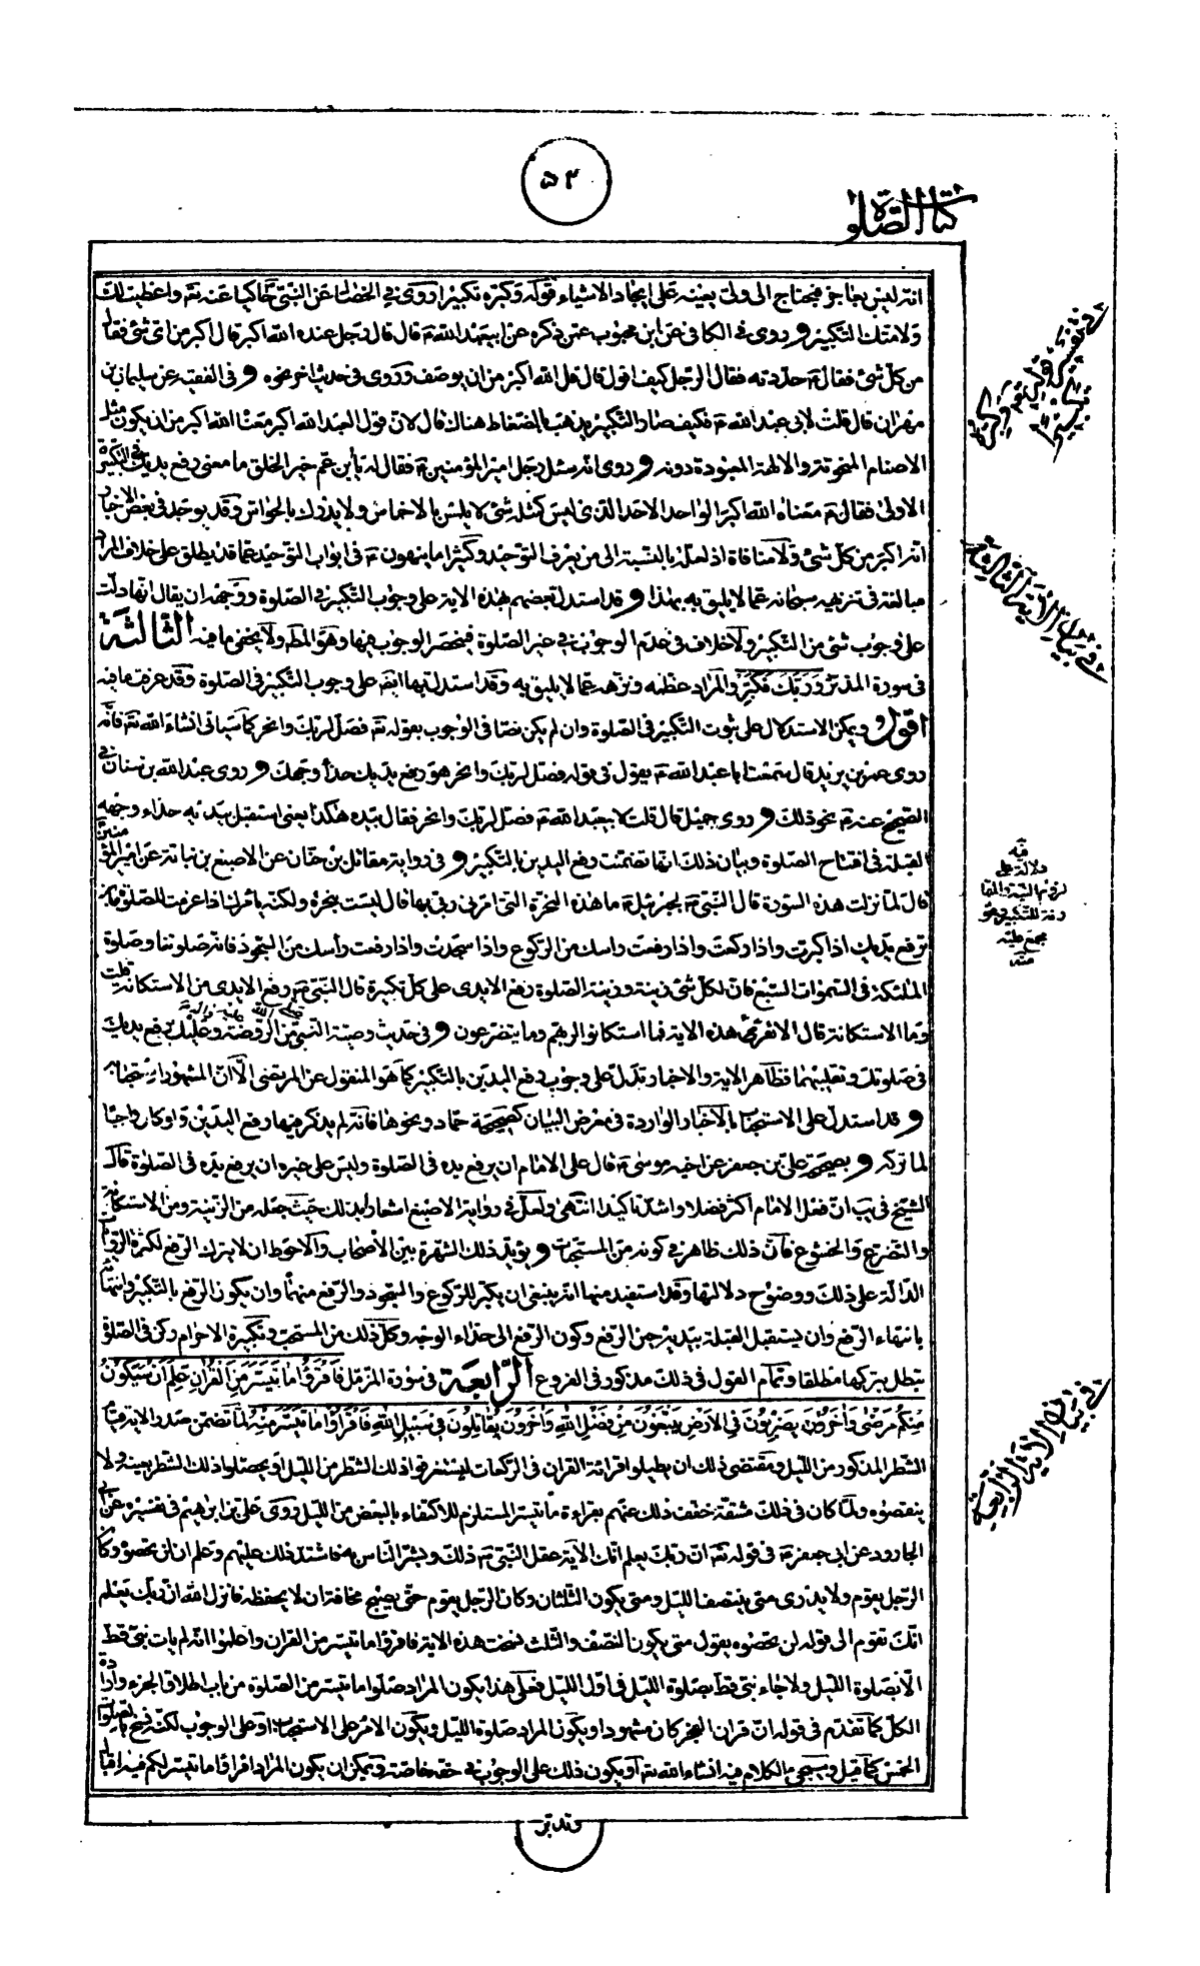 ٥٢
كتاب الصلوة
انه ليس بعاجز فيحتاج الى ولى يعينه على ايجاد الاشياء قوله وكبره تكبيرا روى في الخصال عن النبي حاكيا عنه تعم واعطيت لك
ولامتك التكبير و روى فى الكافى عن ابن محبوب عمن ذكره عن ابيعبد الله ع قال قال رجل عنده الله اكبر قال اكبر من اى شئ فقال
من كل شئ فقال ع حددته فقال الرجل كيف اقول قال قل الله اكبر من ان يوصف وروى فى حديث اخر نحوه و فى الفقيه عن سليمان بن
مهران قال قلت لابى عبد الله ع فكيف صار التكبير يذهب بالضغاط هناك قال لان قول العبد الله اكبر معناه الله اكبر من ان يكون مثل
الاصنام المنحوتة والالهة المعبودة دونه و روى انه سئل رجل امير المؤمنين ع فقال له يا بن عم خير الخلق ما معنى رفع يديك في التكبيرة
الاولى فقال ع معناه الله اكبر الواحد الاحد الذى ليس كمثله شئ لا يلمس بالاخماس ولا يدرك بالحواس وقد يوجد فى بعض الاخبار
انه اكبر من كل شئ ولا منافاة اذ لعله بالنسبة الى من يعرف التوحيد وكثيرا ما ينهون ع فى ابواب التوحيد عما قد يطلق على خلاف المراد
مبالغة فى تنزيهه سبحانه عما لا يليق به بهذا و قد استدل بعضهم بهذه الاية على وجوب التكبير فى الصلوة ووجهه ان يقال انها دلت
على وجوب شئ من التكبير ولا خلاف فى عدم الوجوب في غير الصلوة فينحصر الوجوب فيها وهو المط ولا يخفى ما فيه الثالثة
فى سورة المدثر وربك فكبر والمراد عظمه ونزهه عما لا يليق به وقد استدل بها ايضا على وجوب التكبير فى الصلوة وقد عرفت ما فيه
اقول ويمكن الاستدلال على ثبوت التكبير فى الصلوة وان لم يكن نصا فى الوجوب بقوله تعم فصل لربك وانحر كما سياتى انشاء الله تعم فانه
روى عمر بن يزيد قال سمعت ابا عبد الله ع يقول فى قوله فصل لربك وانحر هو رفع يديك حذاء وجهك و روى عبد الله بن سنان في
الصحيح عنه ع نحو ذلك و روى جميل قال قلت لابيعبد الله ع فصل لربك وانحر فقال بيده هكذا يعنى استقبل بيديه حذاء وجهه
القبلة فى افتتاح الصلوة وبيان ذلك انها تضمنت رفع اليدين بالتكبير و فى رواية مقاتل بن حنان عن الاصبغ بن نباتة عن امير المؤمنين
قال لما نزلت هذه السورة قال النبى ص لجبرئيل ع ما هذه النحرة التى امرنى ربى بها قال ليست بنحرة ولكنه يأمرك اذا عزمت للصلوة ان
ترفع يديك اذا كبرت واذا ركعت واذا رفعت راسك من الركوع واذا سجدت واذا رفعت رأسك من السجود فانه صلوتنا وصلوة
الملئكة فى السموات السبع فان لكل شئ زينة وزينة الصلوة رفع الايدى على كل تكبيرة قال النبى ص رفع الايدى من الاستكانة قلت
وما الاستكانة قال الا تقرئ هذه الاية فما استكانوا لربهم وما يتضرعون و فى حديث وصية النبى صلى الله عليه واله من الروضة وعليك برفع يديك
فى صلوتك وتقليبهما فظاهر الاية والاخبار تدل على وجوب رفع اليدين بالتكبير كما هو المنقول عن المرتضى الا ان المشهور استحبابه
و قد استدل على الاستحباب بالاخبار الواردة فى معرض البيان كصحيحة حماد ونحوها فانه لم يذكر فيها رفع اليدين ولو كان واجبا
لما تركه و بصحيحة على بن جعفر عن اخيه موسى ع قال على الامام ان يرفع يده فى الصلوة وليس على غيره ان يرفع يده فى الصلوة قال
الشيخ فى يب ان فعل الامام اكثر فضلا واشد تاكيدا انتهى ولعل فى رواية الاصبغ اشعارا بذلك حيث جعله من الزينة ومن الاستكانة
والتضرع والخشوع فان ذلك ظاهر في كونه من المستحبات و يؤيد ذلك الشهرة بين الاصحاب والاحوط ان لا يترك الرفع لكثرة الروايات
الدالة على ذلك ووضوح دلالتها وقد استفيد منها انه ينبغى ان يكبر للركوع والسجود والرفع منهما وان يكون الرفع بالتكبير وانتهائه
بانتهاء الرفع وان يستقبل القبلة بيديه حين الرفع وكون الرفع الى حذاء الوجه وكل ذلك من المستحب وتكبيرة الاحرام ركن فى الصلوة
تبطل بتركها مطلقا وتمام القول فى ذلك مذكور فى الفروع الرابعة فى سورة المزمل فاقرؤا ما تيسر من القران علم ان سيكون
منكم مرضى واخرون يضربون فى الارض يبتغون من فضل الله واخرون يقاتلون فى سبيل الله فاقرؤا ما تيسر منه لما تضمن صدر الاية قيام
الشطر المذكور من الليل ومقتضى ذلك ان يطيلوا قرائة القران فى الركعات ليستغرقوا ذلك الشطر من الليل او يحصلوا ذلك الشطر بعينه ولا
ينقصوه ولما كان فى ذلك مشقة خفف ذلك عنهم بقراءة ما تيسر المستلزم للاكتفاء بالبعض من الليل روى على بن ابراهيم فى تفسيره عن ابى
الجارود عن ابى جعفر ع فى قوله تعم ان ربك يعلم انك الاية ففعل النبى ص ذلك وبشر الناس به فاشتد ذلك عليهم وعلم ان لن تحصوه وكان
الرجل يقوم ولا يدرى متى ينتصف الليل ومتى يكون الثلثان وكان الرجل يقوم حتى يصبح مخافة ان لا يحفظه فانزل الله ان ربك يعلم
انك تقوم الى قوله لن تحصوه يقول متى يكون النصف والثلث نسخت هذه الاية فاقرؤا ما تيسر من القران واعلموا انه لم يات نبى قط
الا بصلوة الليل ولا جاء نبى قط بصلوة الليل فى اول الليل فعلى هذا يكون المراد صلوا ما تيسر من الصلوة من باب اطلاق الجزء وارادة
الكل كما تقدم فى قوله ان قران الفجر كان مشهودا ويكون المراد صلوة الليل ويكون الامر على الاستحباب او على الوجوب لكنه نسخ بالصلوات
الخمس كما قيل وسيجئ الكلام فيه انشاء الله تعم او يكون ذلك على الوجوب في حقه خاصة ويمكن ان يكون المراد اقرؤا ما تيسر لكم فيه اقبال
وتدبر
فى تفسير قوله تعم وكبره تكبيرا
فى بيان الاية الثالثة
فيه
دلالة على
مجمع عليه
منه
فى بيان الاية الرابعة